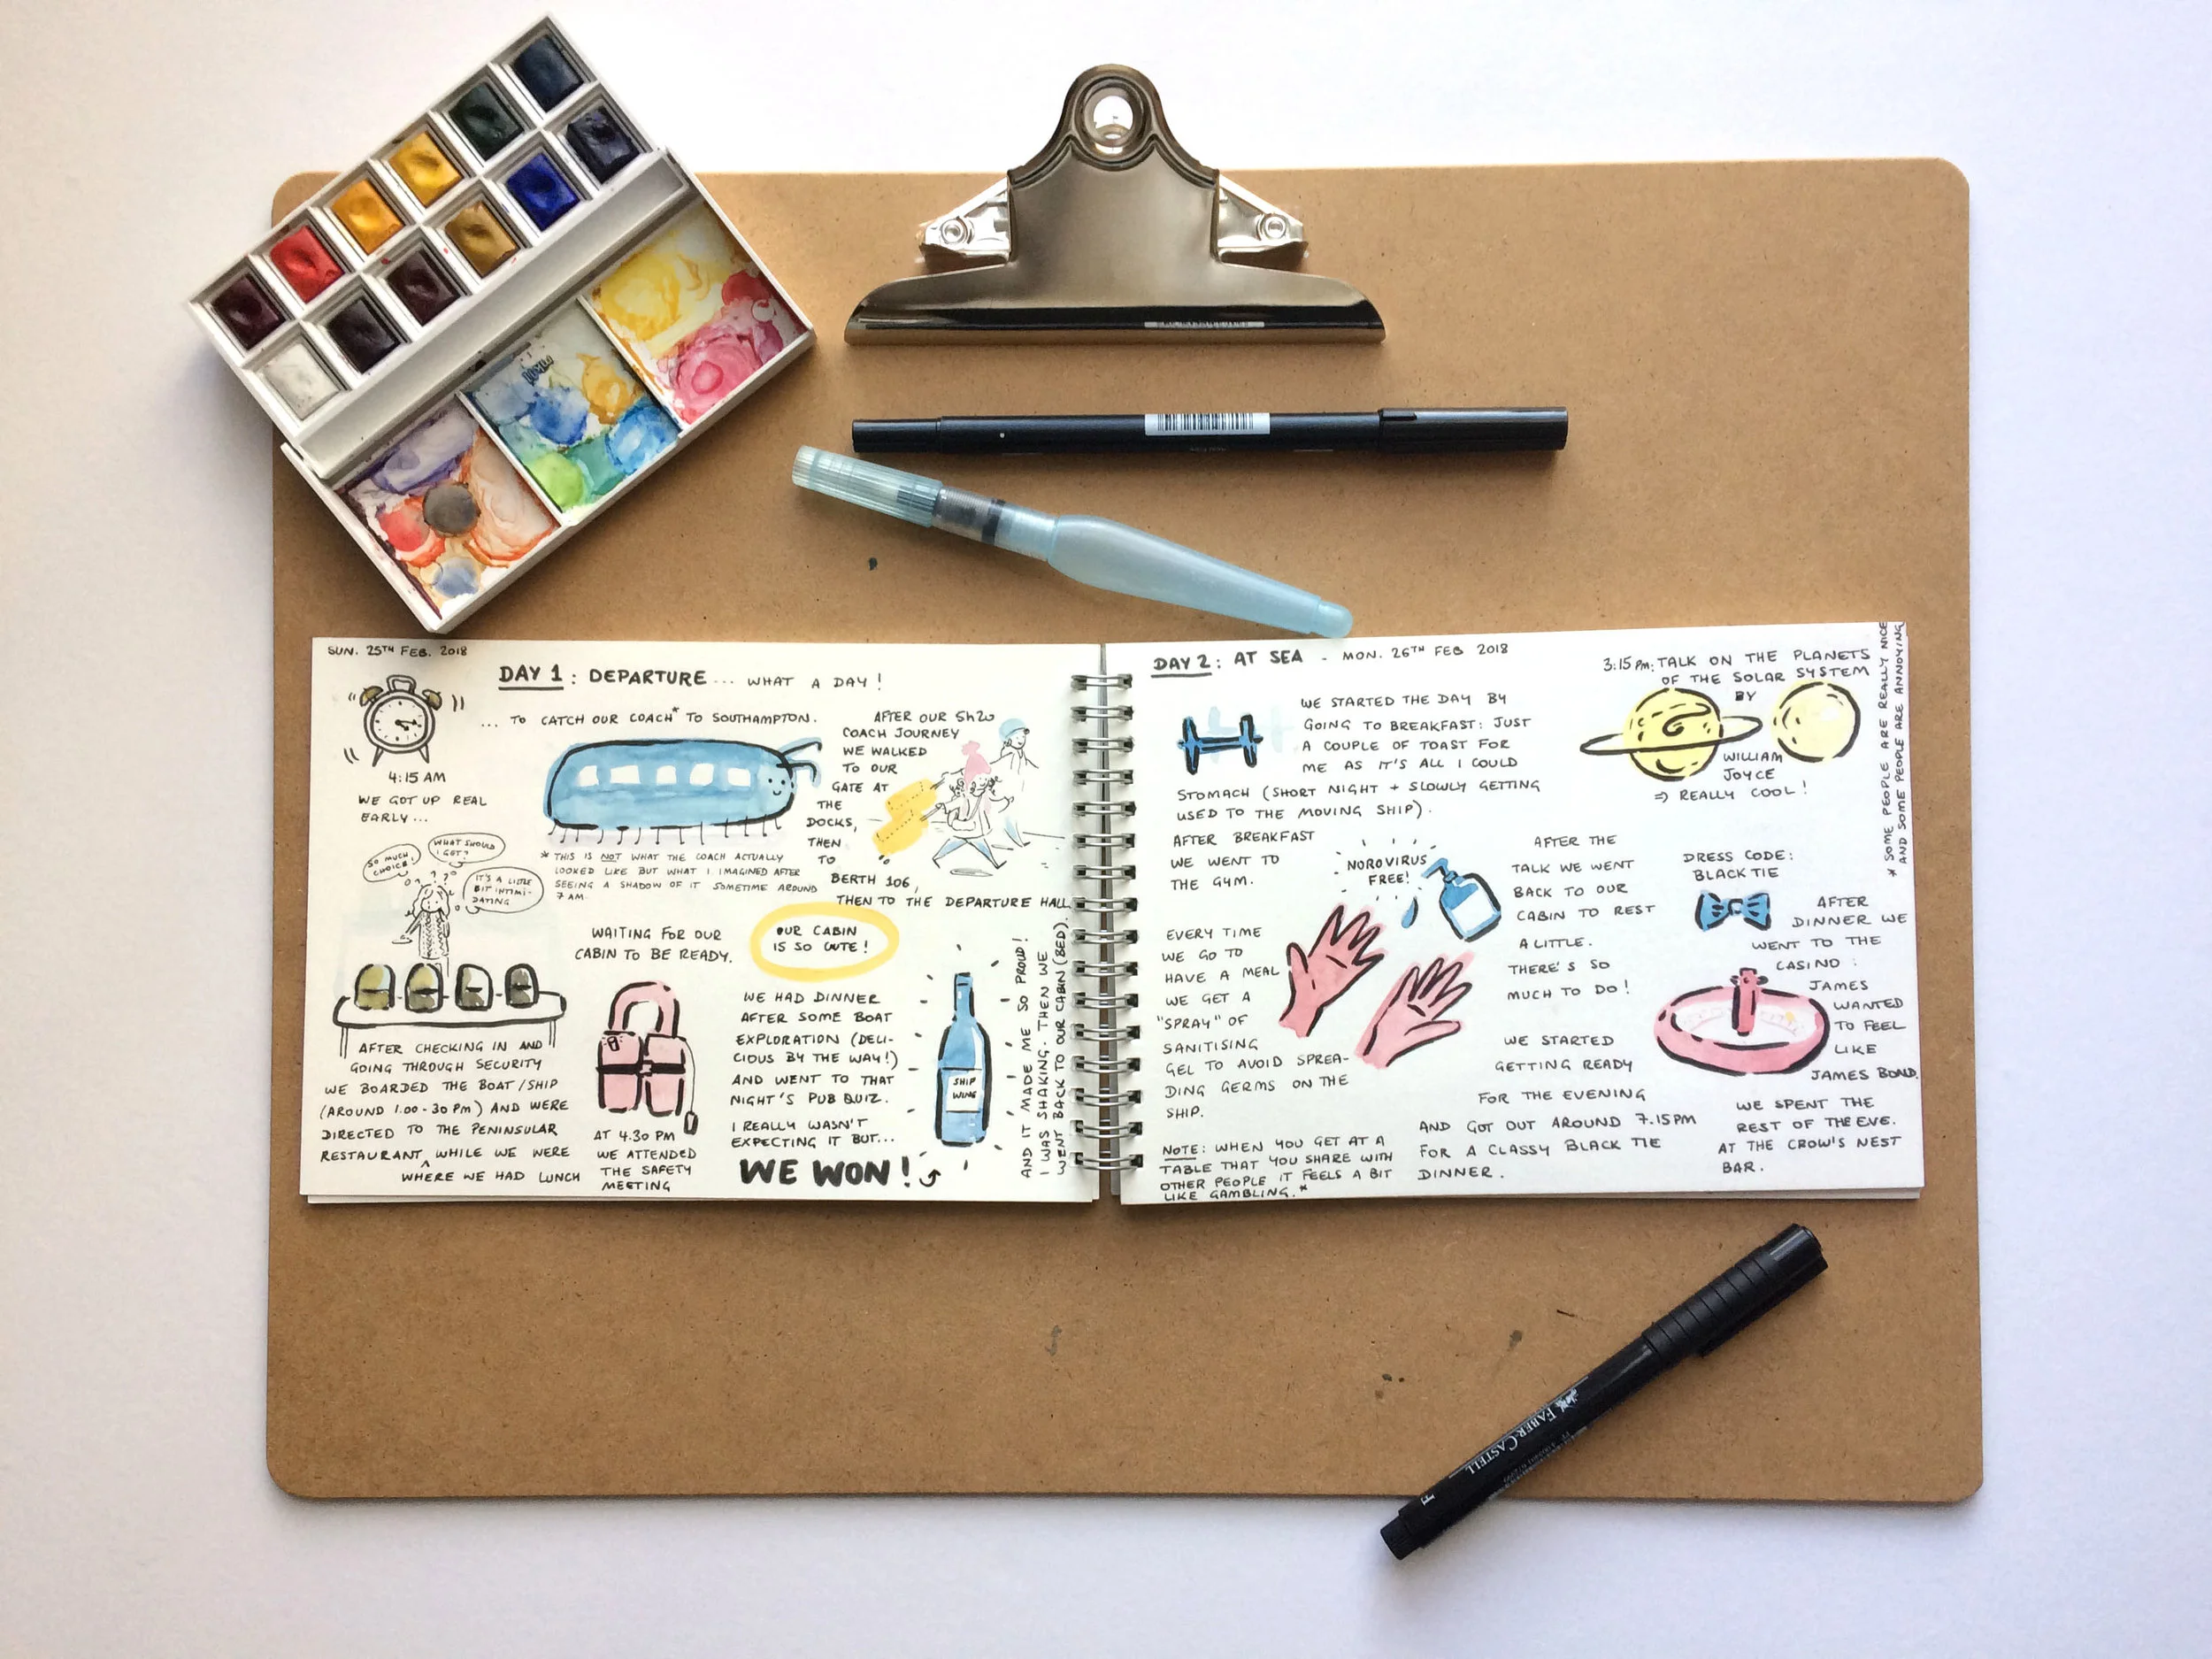 SUN. 25TH FEB. 2018
DAY 1 : DEPARTURE ... WHAT A DAY !
4:15 AM
WE GOT UP REAL
EARLY ...
... TO CATCH OUR COACH* TO SOUTHAMPTON.
* THIS IS NOT WHAT THE COACH ACTUALLY
LOOKED LIKE BUT WHAT I IMAGINED AFTER
SEEING A SHADOW OF IT SOMETIME AROUND
7 AM.
AFTER OUR 5H20
COACH JOURNEY
WE WALKED
TO OUR
GATE AT
THE
DOCKS,
THEN
TO
BERTH 106,
THEN TO THE DEPARTURE HALL
SO MUCH
CHOICE!
WHAT SHOULD
I GET?
IT'S A LITTLE
BIT INTIMI-
DATING
WAITING FOR OUR
CABIN TO BE READY.
OUR CABIN
IS SO CUTE !
AFTER CHECKING IN AND
GOING THROUGH SECURITY
WE BOARDED THE BOAT / SHIP
(AROUND 1.00 - 30 PM) AND WERE
DIRECTED TO THE PENINSULAR
RESTAURANT, WHILE WE WERE
WHERE WE HAD LUNCH
AT 4.30 PM
WE ATTENDED
THE SAFETY
MEETING
WE HAD DINNER
AFTER SOME BOAT
EXPLORATION (DELI-
CIOUS BY THE WAY!)
AND WENT TO THAT
NIGHT'S PUB QUIZ.
I REALLY WASN'T
EXPECTING IT BUT...
WE WON !
SHIP
WINE
AND IT MADE ME SO PROUD!
I WAS SHAKING. THEN WE
WENT BACK TO OUR CABIN (BED).
DAY 2 : AT SEA - MON. 26TH FEB 2018
WE STARTED THE DAY BY
GOING TO BREAKFAST: JUST
A COUPLE OF TOAST FOR
ME AS IT'S ALL I COULD
STOMACH (SHORT NIGHT + SLOWLY GETTING
USED TO THE MOVING SHIP).
AFTER BREAKFAST
WE WENT TO
THE GYM.
NOROVIRUS
FREE!
EVERY TIME
WE GO TO
HAVE A MEAL
WE GET A
"SPRAY" OF
SANITISING
GEL TO AVOID SPREA-
DING GERMS ON THE
SHIP.
NOTE: WHEN YOU GET AT A
TABLE THAT YOU SHARE WITH
OTHER PEOPLE IT FEELS A BIT
LIKE GAMBLING. *
3:15 PM: TALK ON THE PLANETS
OF THE SOLAR SYSTEM
BY
WILLIAM
JOYCE
=> REALLY COOL !
* SOME PEOPLE ARE REALLY NICE
AND SOME PEOPLE ARE ANNOYING
AFTER THE
TALK WE WENT
BACK TO OUR
CABIN TO REST
A LITTLE.
THERE'S SO
MUCH TO DO !
WE STARTED
GETTING READY
FOR THE EVENING
AND GOT OUT AROUND 7.15PM
FOR A CLASSY BLACK TIE
DINNER.
DRESS CODE:
BLACK TIE
AFTER
DINNER WE
WENT TO THE
CASINO :
JAMES
WANTED
TO FEEL
LIKE
JAMES BOND.
WE SPENT THE
REST OF THE EVE.
AT THE CROW'S NEST
BAR.
FABER-CASTELL
F